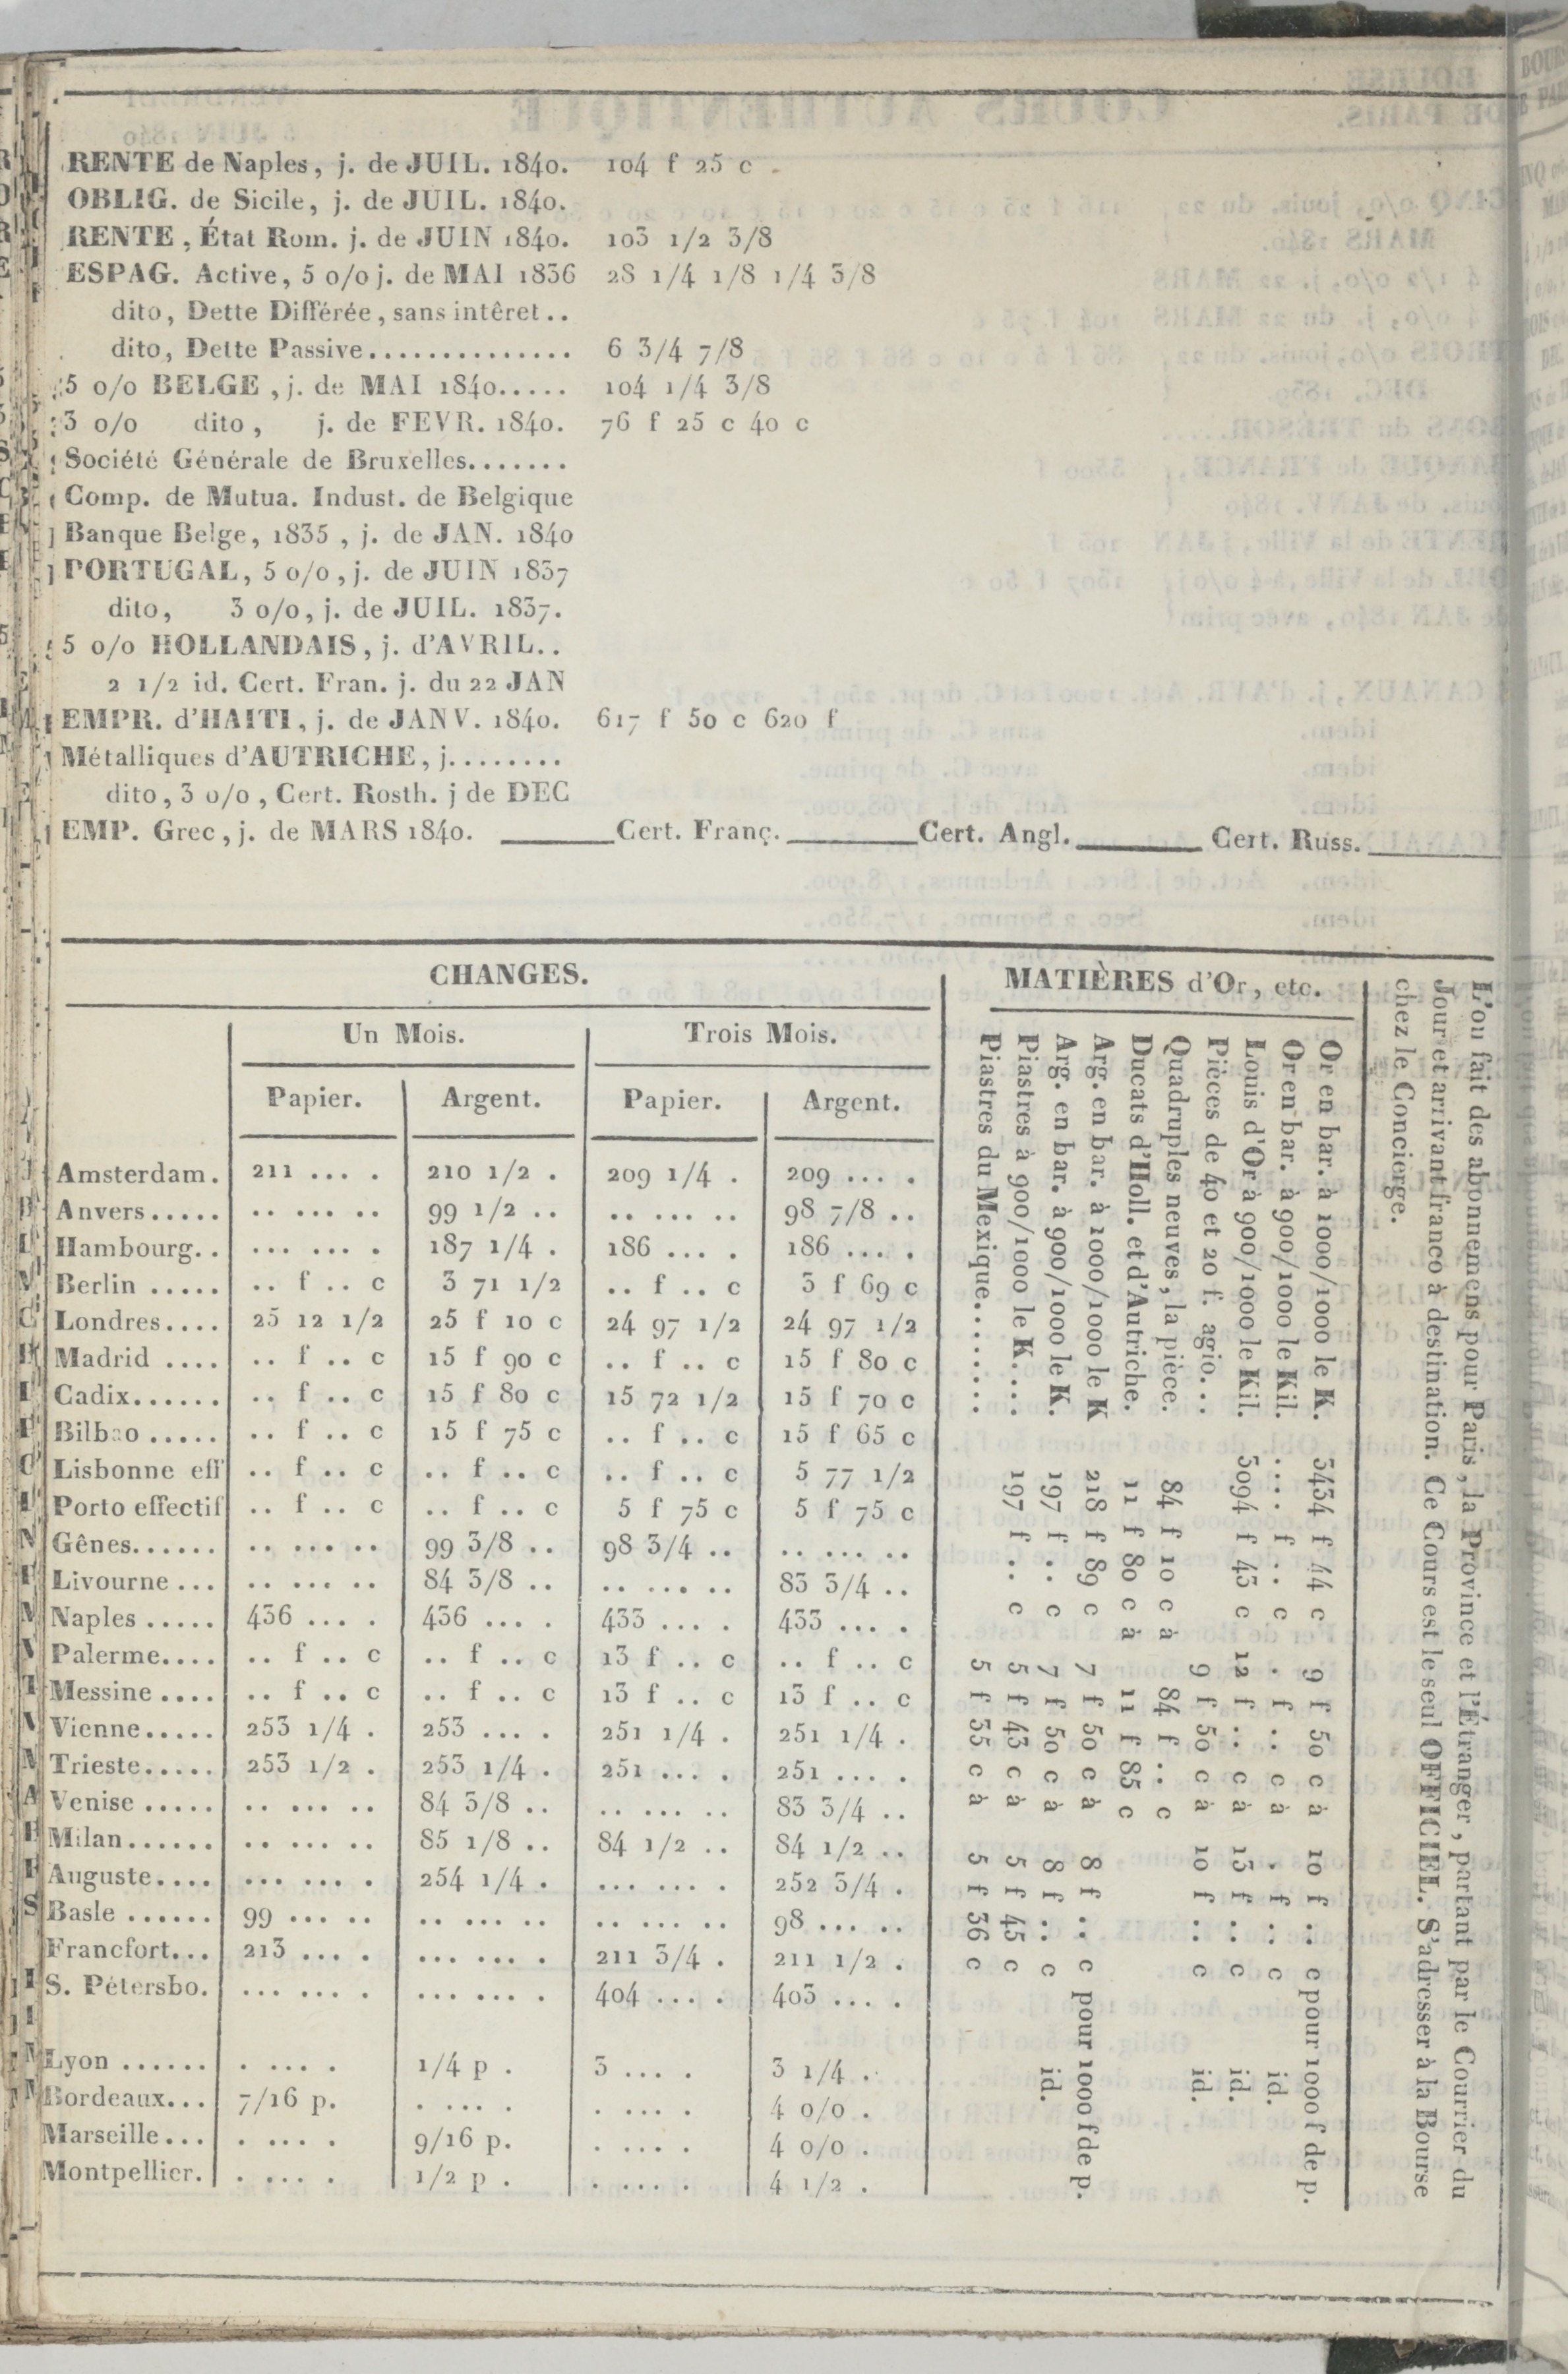 RENTE de Naples, j. de JUIL. 1840. 104 f 25 c
OBLIG. de Sicile, j. de JUIL. 1840.
RENTE, État Rom. j. de JUIN 1840. 103 1/2 3/8
ESPAG. Active, 5 o/o j. de MAI 1836 28 1/4 1/8 1/4 3/8
dito, Dette Différée, sans intêret..
dito, Dette Passive.............. 6 3/4 7/8
5 o/o BELGE, j. de MAI 1840..... 104 1/4 3/8
3 o/o dito, j. de FEVR. 1840. 76 f 25 c 40 c
Société Générale de Bruxelles.......
Comp. de Mutua. Indust. de Belgique
Banque Belge, 1835, j. de JAN. 1840
PORTUGAL, 5 o/o, j. de JUIN 1837
dito, 3 o/o, j. de JUIL. 1837.
5 o/o HOLLANDAIS, j. d'AVRIL..
2 1/2 id. Cert. Fran. j. du 22 JAN
EMPR. d'HAITI, j. de JANV. 1840. 617 f 50 c 620 f
Métalliques d'AUTRICHE, j........
dito, 3 o/o, Cert. Rosth. j de DEC
EMP. Grec, j. de MARS 1840. ______Cert. Franç.______Cert. Angl.______ Cert. Russ.______
CHANGES.
Un Mois. Trois Mois.
Papier. Argent. Papier. Argent.
Amsterdam. 211 ... . 210 1/2 . 209 1/4 . 209 ... .
Anvers..... .. ... .. 99 1/2 .. .. ... .. 98 7/8 ..
Hambourg.. ... ... . 187 1/4 . 186 ... . 186 ... .
Berlin ..... .. f .. c 3 71 1/2 .. f .. c 3 f 69 c
Londres.... 25 12 1/2 25 f 10 c 24 97 1/2 24 97 1/2
Madrid .... .. f .. c 15 f 90 c .. f .. c 15 f 80 c
Cadix...... .. f .. c 15 f 80 c 15 72 1/2 15 f 70 c
Bilbao ..... .. f .. c 15 f 75 c .. f .. c 15 f 65 c
Lisbonne eff .. f .. c .. f .. c .. f .. c 5 77 1/2
Porto effectif .. f .. c .. f .. c 5 f 75 c 5 f 75 c
Gênes...... .. ... .. 99 3/8 .. 98 3/4 .. .. ... ..
Livourne ... .. ... .. 84 3/8 .. .. ... .. 83 3/4 ..
Naples ..... 436 ... . 436 ... . 433 ... . 433 ... .
Palerme.... .. f .. c .. f .. c 13 f .. c .. f .. c
Messine .... .. f .. c .. f .. c 13 f .. c 13 f .. c
Vienne..... 253 1/4 . 253 ... . 251 1/4 . 251 1/4 .
Trieste..... 253 1/2 . 253 1/4 . 251 ... . 251 ... .
Venise ..... .. ... .. 84 3/8 .. .. ... .. 83 3/4 ..
Milan...... .. ... .. 85 1/8 .. 84 1/2 .. 84 1/2 ..
Auguste.... ... ... . 254 1/4 . ... ... . 252 3/4 .
Basle ...... 99 ... .. .. ... .. .. ... .. 98 ... ..
Francfort... 213 ... . ... ... . 211 3/4 . 211 1/2 .
S. Pétersbo. ... ... . ... ... . 404 ... . 403 ... .
Lyon ...... . ... . 1/4 p . 3 ... . 3 1/4 .
Bordeaux... 7/16 p. . ... . . ... . 4 o/o .
Marseille... . ... . 9/16 p. . ... . 4 o/o .
Montpellier. . ... . 1/2 p . . ... . 4 1/2 .
MATIÈRES d'Or, etc.
Or en bar. à 1000/1000 le K. 3434 f 44 c 9 f 50 c à 10 f .. c pour 1000 f de p.
Or en bar. à 900/1000 le Kil. .... f .. c . f .. c à . f .. c id.
Louis d'Or à 900/1000 le Kil. 3094 f 43 c 12 f .. c à 13 f .. c id.
Pièces de 40 et 20 f. agio... 9 f 50 c à 10 f .. c id.
Quadruples neuves, la pièce. 84 f 10 c à 84 f .. c
Ducats d'Holl. et d'Autriche. 11 f 80 c à 11 f 85 c
Arg. en bar. à 1000/1000 le K 218 f 89 c 7 f 50 c à 8 f .. c pour 1000 f de p.
Arg. en bar. à 900/1000 le K. 197 f .. c 7 f 50 c à 8 f .. c id.
Piastres à 900/1000 le K.... 197 f .. c 5 f 43 c à 5 f 45 c
Piastres du Mexique........ 5 f 35 c à 5 f 36 c
L'ou fait des abonnemens pour Paris, la Province et l'Étranger, partant par le Courrier du
Jour et arrivant franco à destination. Ce Cours est le seul OFFICIEL. S'adresser à la Bourse
chez le Concierge.